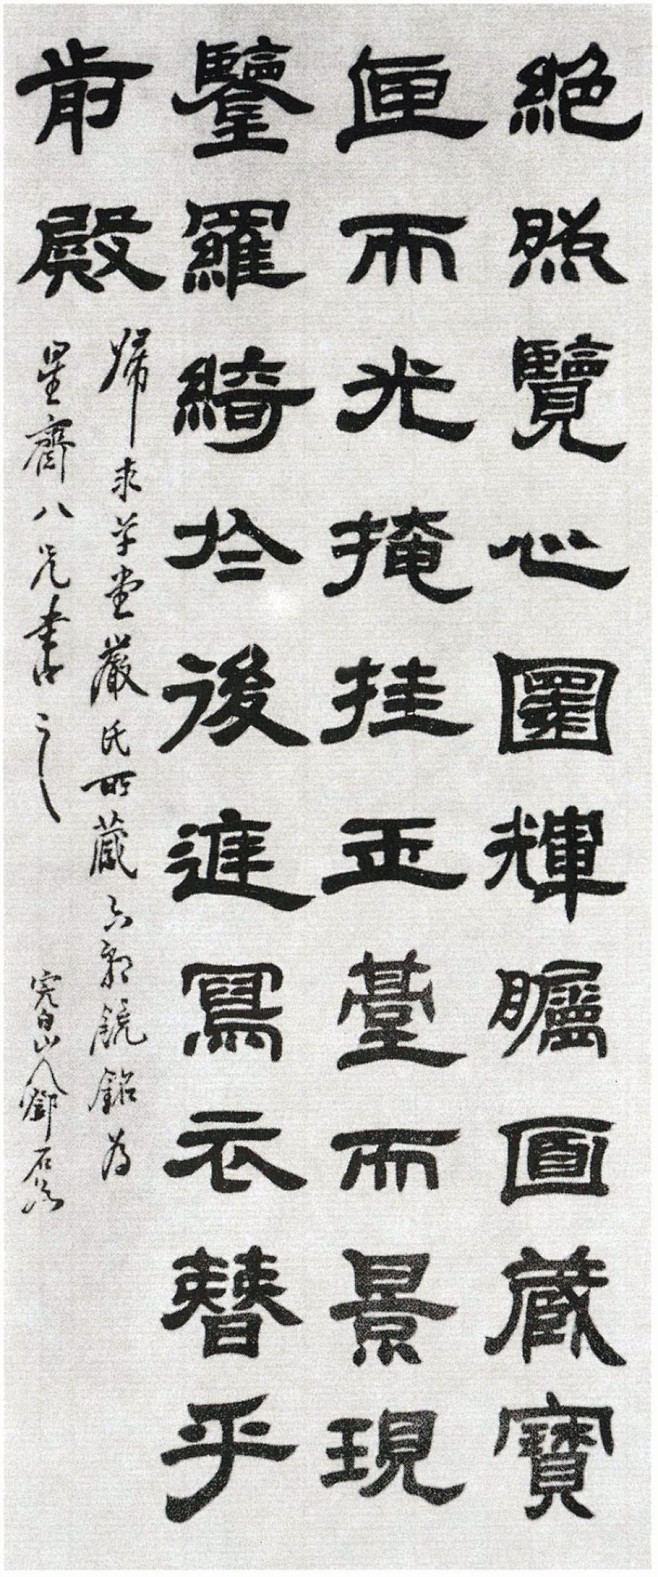 絶照覽心圓輝矚面藏寶
匣而光掩挂玉臺而景現
鑒羅綺於後庭寫衣簪乎
前殿
歸求草堂嚴氏所藏六朝鏡銘爲
星齋八兄書之
完白山人鄧石如